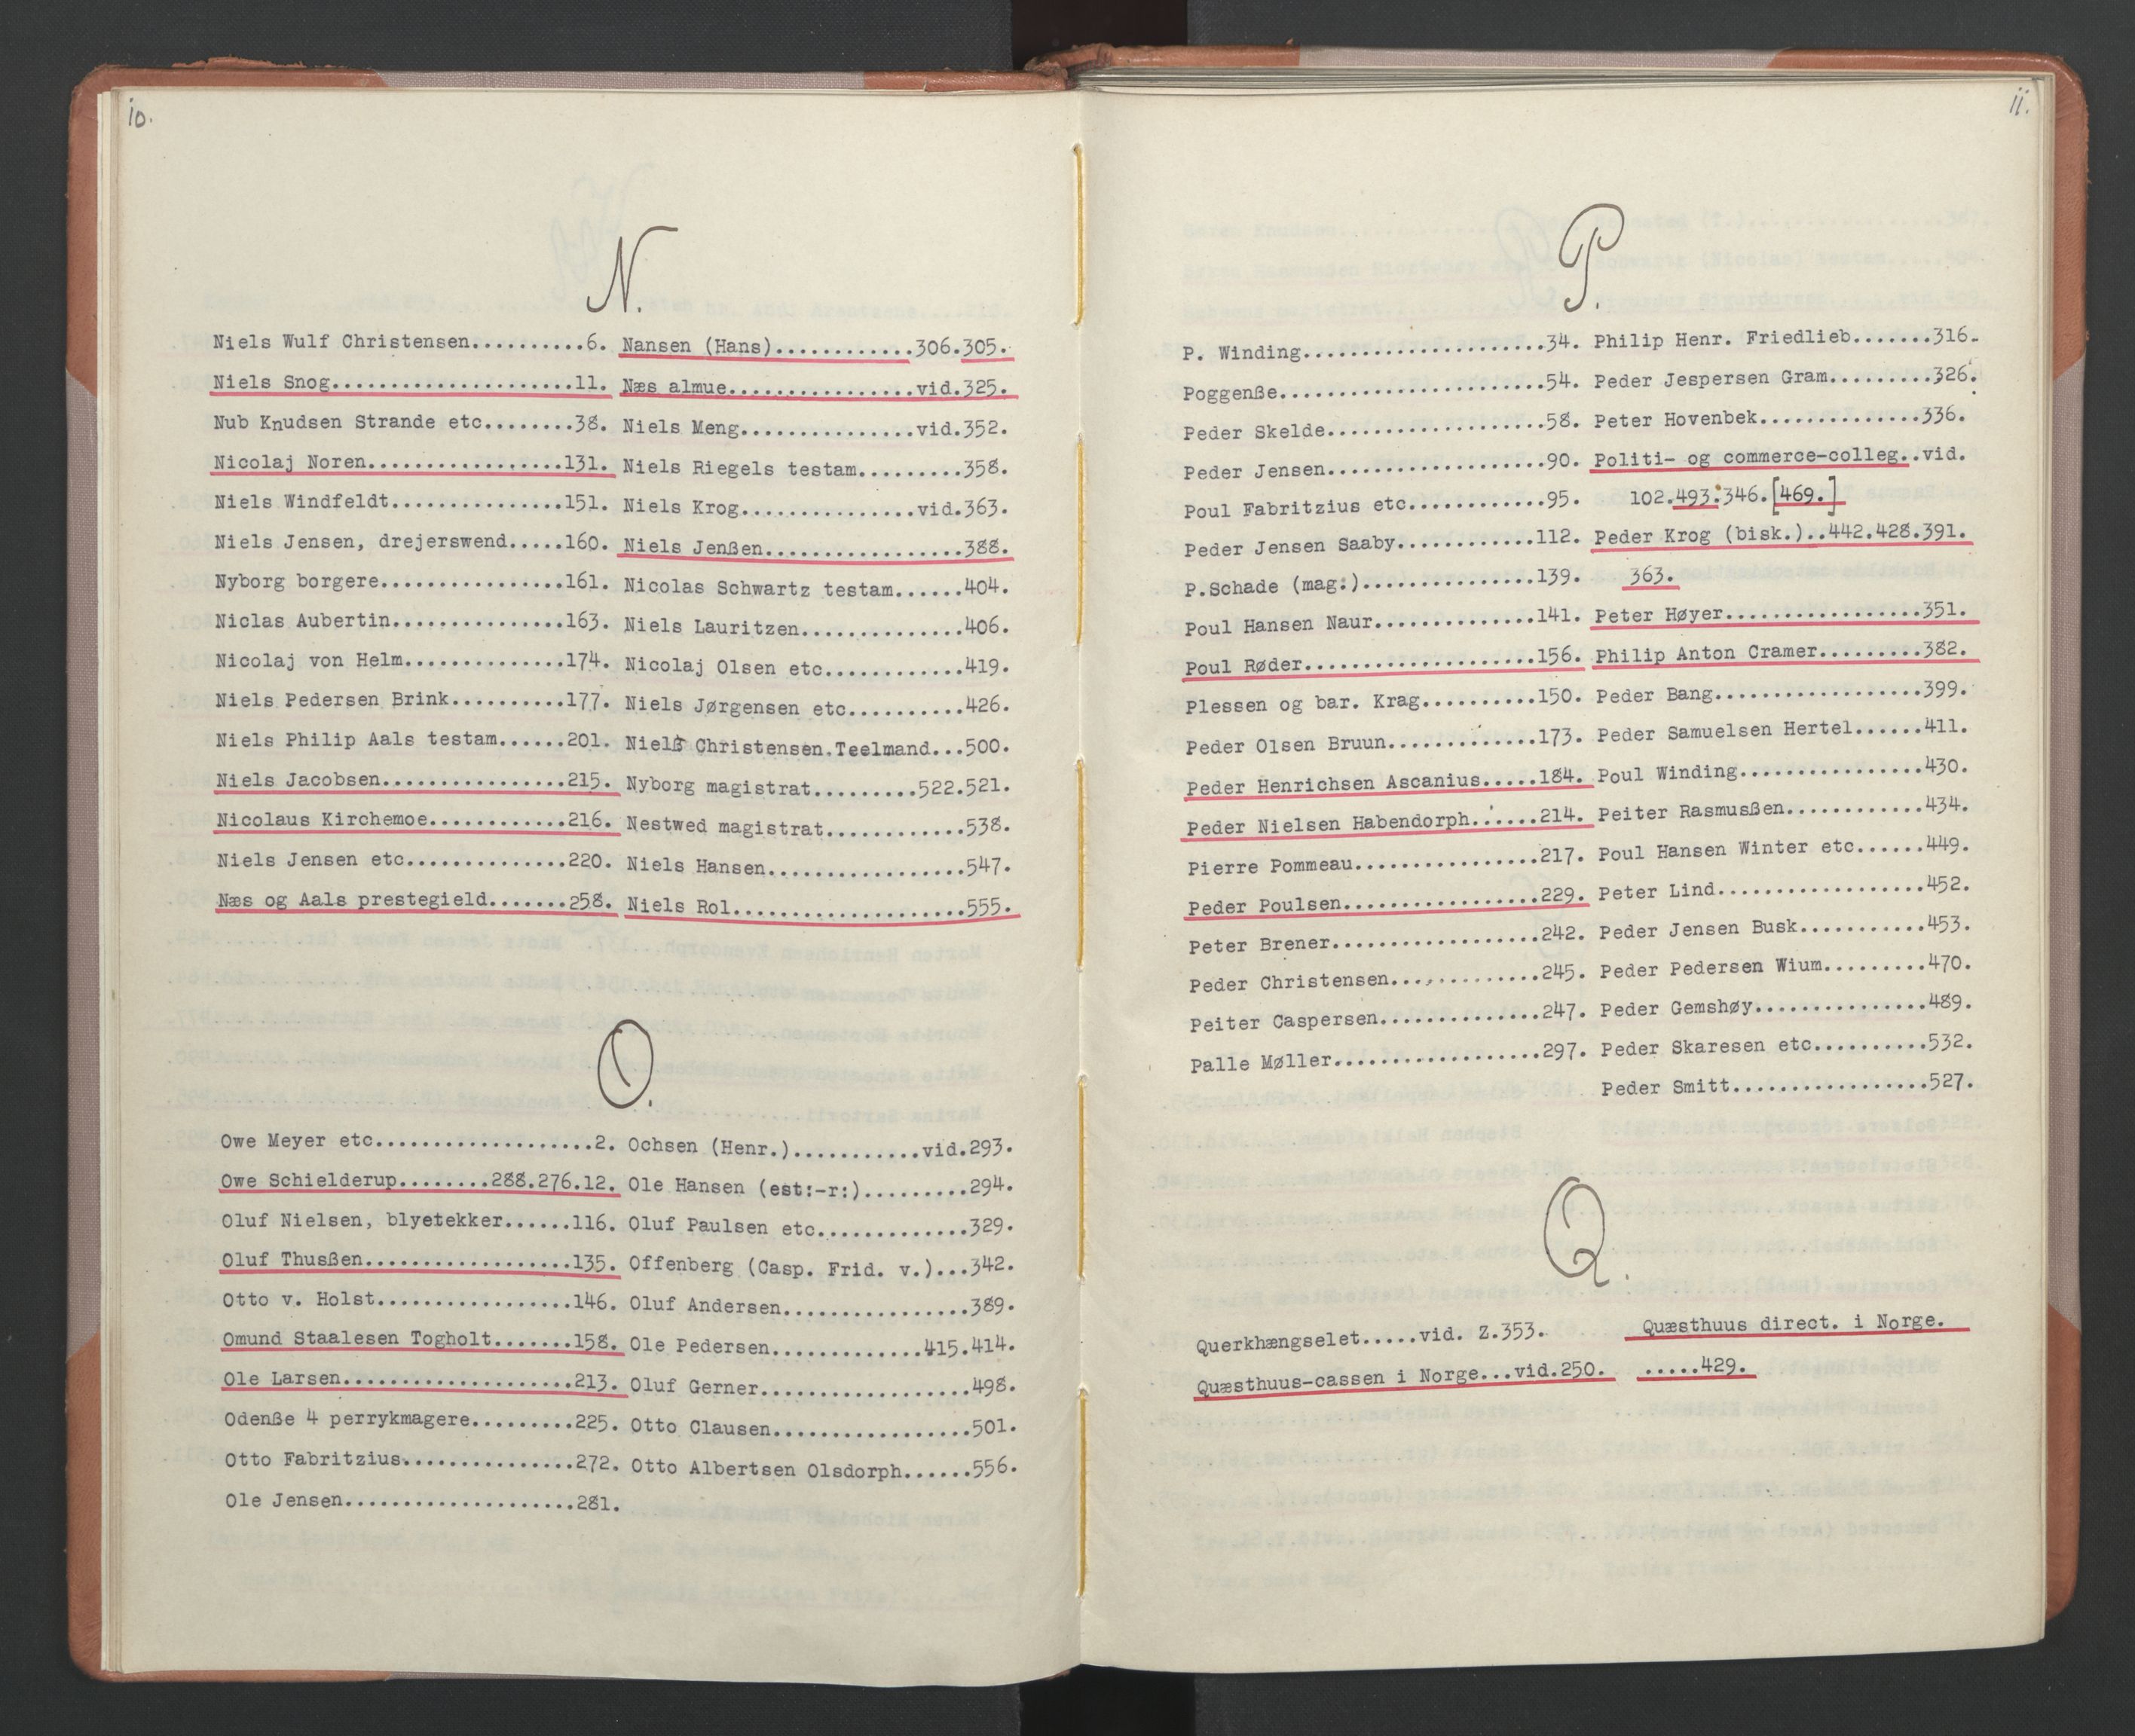 10.
N.
Niels Wulf Christensen..........6.
Niels Snog.....................11.
Nub Knudsen Strande etc........38.
Nicolaj Noren.................131.
Niels Windfeldt...............151.
Niels Jensen, drejerswend.....160.
Nyborg borgere................161.
Niclas Aubertin...............163.
Nicolaj von Helm..............174.
Niels Pedersen Brink..........177.
Niels Philip Aals testam......201.
Niels Jacobsen................215.
Nicolaus Kirchemoe............216.
Niels Jensen etc..............220.
Næs og Aals prestegield.......258.
Nansen (Hans)............306.305.
Næs almue................vid.325.
Niels Meng...............vid.352.
Niels Riegels testam.........358.
Niels Krog...............vid.363.
Niels Jenßen.................388.
Nicolas Schwartz testam......404.
Niels Lauritzen..............406.
Nicolaj Olsen etc............419.
Niels Jørgensen etc..........426.
Niels Christensen.Teelmand...500.
Nyborg magistrat.........522.521.
Nestwed magistrat............538.
Niels Hansen.................547.
Niels Rol....................555.
O.
Owe Meyer etc...................2.
Owe Schielderup........288.276.12.
Oluf Nielsen, blyetekker......116.
Oluf Thusßen..................135.
Otto v. Holst.................146.
Omund Staalesen Togholt.......158.
Ole Larsen....................213.
Odenße 4 perrykmagere.........225.
Otto Fabritzius...............272.
Ole Jensen....................281.
Ochsen (Henr.)...........vid.293.
Ole Hansen (est:-r:).........294.
Oluf Paulsen etc.............329.
Offenberg (Casp. Frid. v.)...342.
Oluf Andersen................389.
Ole Pedersen.............415.414.
Oluf Gerner..................498.
Otto Clausen.................501.
Otto Albertsen Olsdorph......556.
11.
P.
P. Winding.....................34.
Poggenße.......................54.
Peder Skelde...................58.
Peder Jensen...................90.
Poul Fabritzius etc............95.
Peder Jensen Saaby............112.
P.Schade (mag:)...............139.
Poul Hansen Naur..............141.
Poul Røder....................156.
Plessen og bar. Krag..........150.
Peder Olsen Bruun.............173.
Peder Henrichsen Ascanius.....184.
Peder Nielsen Habendorph......214.
Pierre Pommeau................217.
Peder Poulsen.................229.
Peter Brener..................242.
Peder Christensen.............245.
Peiter Caspersen..............247.
Palle Møller..................297.
Philip Henr. Friedlieb.......316.
Peder Jespersen Gram.........326.
Peter Hovenbek..............336.
Politi- og commerce-colleg..vid.
102.493.346.[469.]
Peder Krog (bisk.)..442.428.391.
363.
Peter Høyer.................351.
Philip Anton Cramer.........382.
Peder Bang..................399.
Peder Samuelsen Hertel......411.
Poul Winding................430.
Peiter Rasmusßen............434.
Poul Hansen Winter etc......449.
Peter Lind..................452.
Peder Jensen Busk...........453.
Peder Pedersen Wium.........470.
Peder Gemshøy...............489.
Peder Skaresen etc..........532.
Peder Smitt.................527.
Q.
Querkhængselet.....vid. Z.353.
Quæsthuus-cassen i Norge...vid.250.
Quæsthuus direct. i Norge.
.....429.